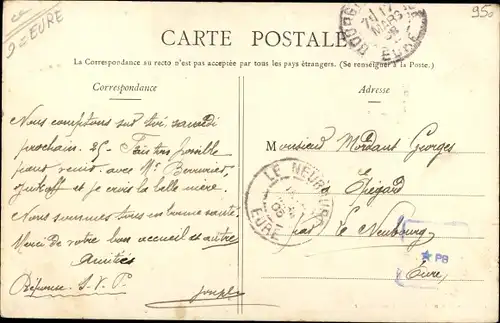 D = EURE
950
BOURG
MARS
EURE
CARTE POSTALE
La Correspondance au recto n'est pas acceptée par tous les pays étrangers. (Se renseigner à la Poste.)
Correspondance
Adresse
Nous comptons sur toi, samedi
prochain. 25-. Fais ton possible
pour venir avec Mr
et je crois la belle mère.
Nous sommes tous en bonne santé.
Merci de votre bon accueil et autre
Amitiés
Réponse. S.V.P.
Joseph
Monsieur Mordant Georges
Epégard
par Le Neubourg
Eure.
LE NEUBOURG
08
EURE
★ PB